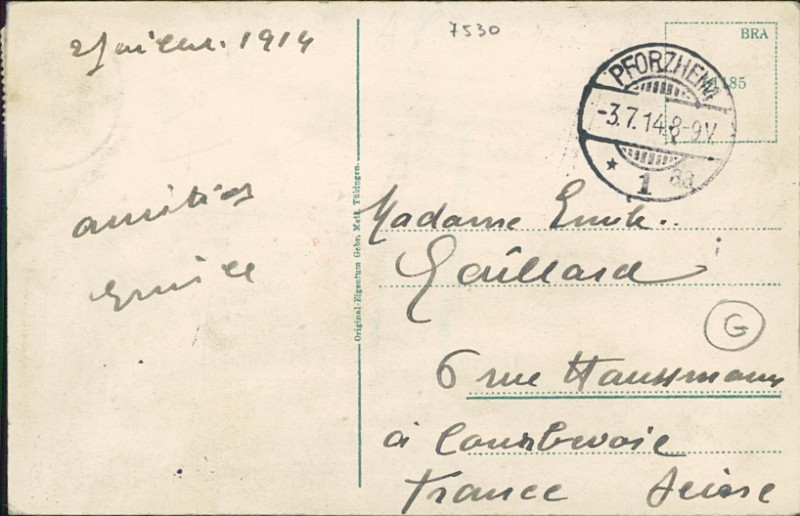 2 Juillet. 1914
7530
BRA
185
PFORZHEIM
-3.7.14.8-9V.
* 1 8a
amitiés
Emile
Original-Eigentum Gebr. Metz, Tübingen.
Madame Emile
Gaillard
G
6 rue Haussmann
à Courbevoie
France Seine